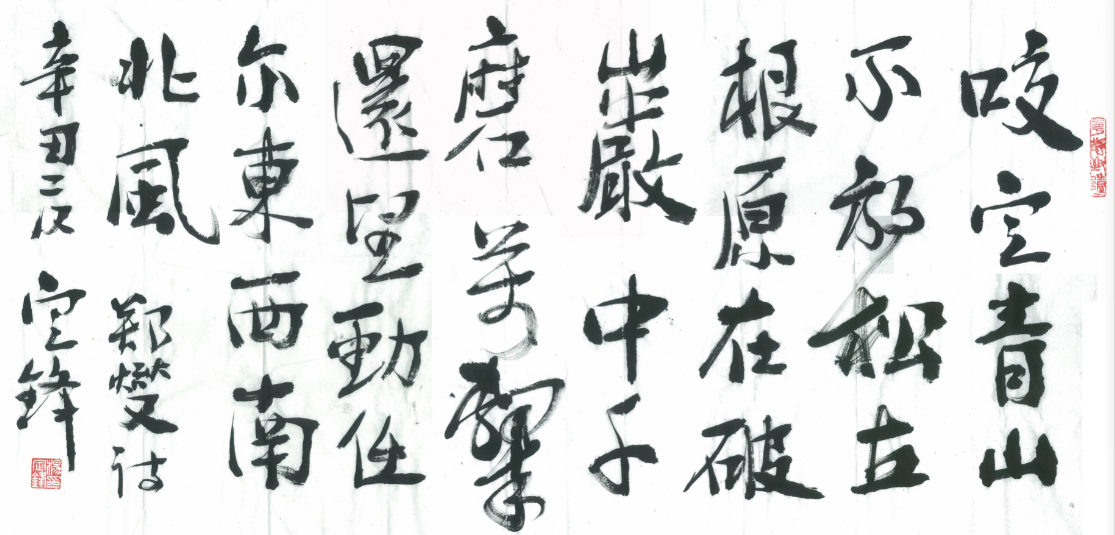 咬定青山
不放松立
根原在破
巖中千
磨萬擊
還堅勁任
尔東西南
北風 鄭燮詩
辛丑 定鋒